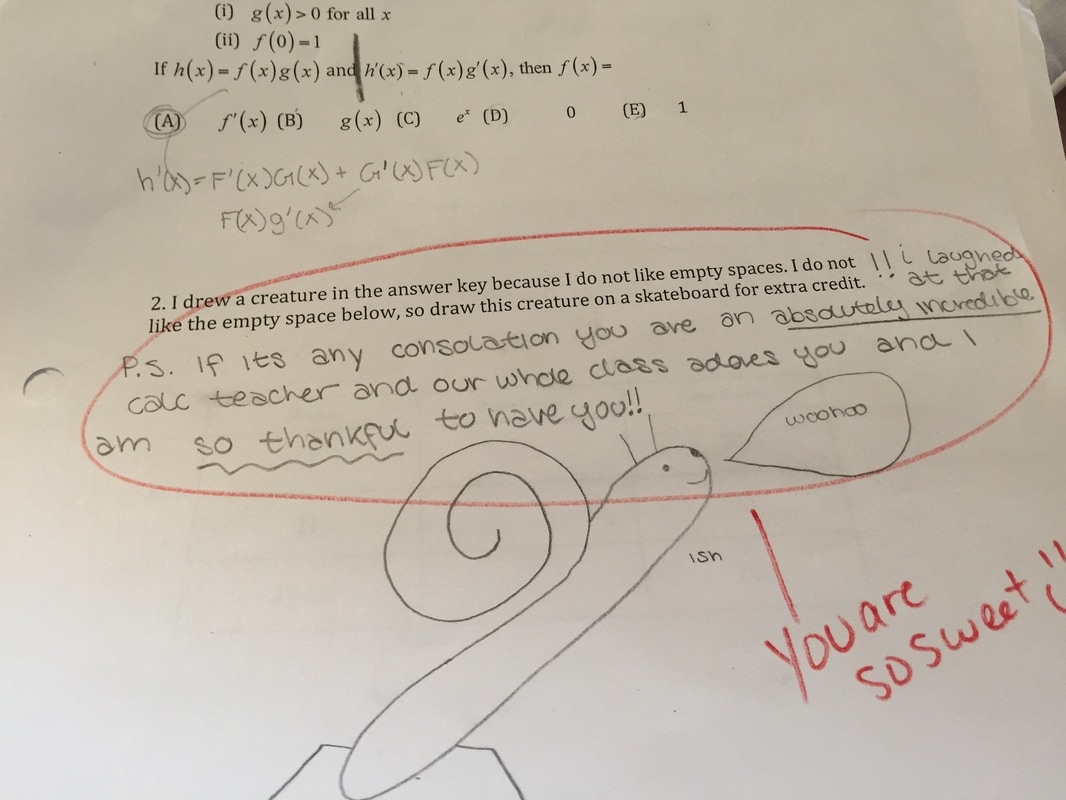 (i) g(x) > 0 for all x
(ii) f(0) = 1
If h(x) = f(x)g(x) and h'(x) = f(x)g'(x), then f(x) =
(A) f'(x) (B) g(x) (C) eˣ (D) 0 (E) 1
h'(x) = F'(x)G(x) + G'(x)F(x)
F(x)g'(x)
2. I drew a creature in the answer key because I do not like empty spaces. I do not
like the empty space below, so draw this creature on a skateboard for extra credit.
!! i laughed
at that
P.S. If its any consolation you are an absolutely incredible
calc teacher and our whole class adores you and I
am so thankful to have you!!
woohoo
ish
You are
so sweet!!